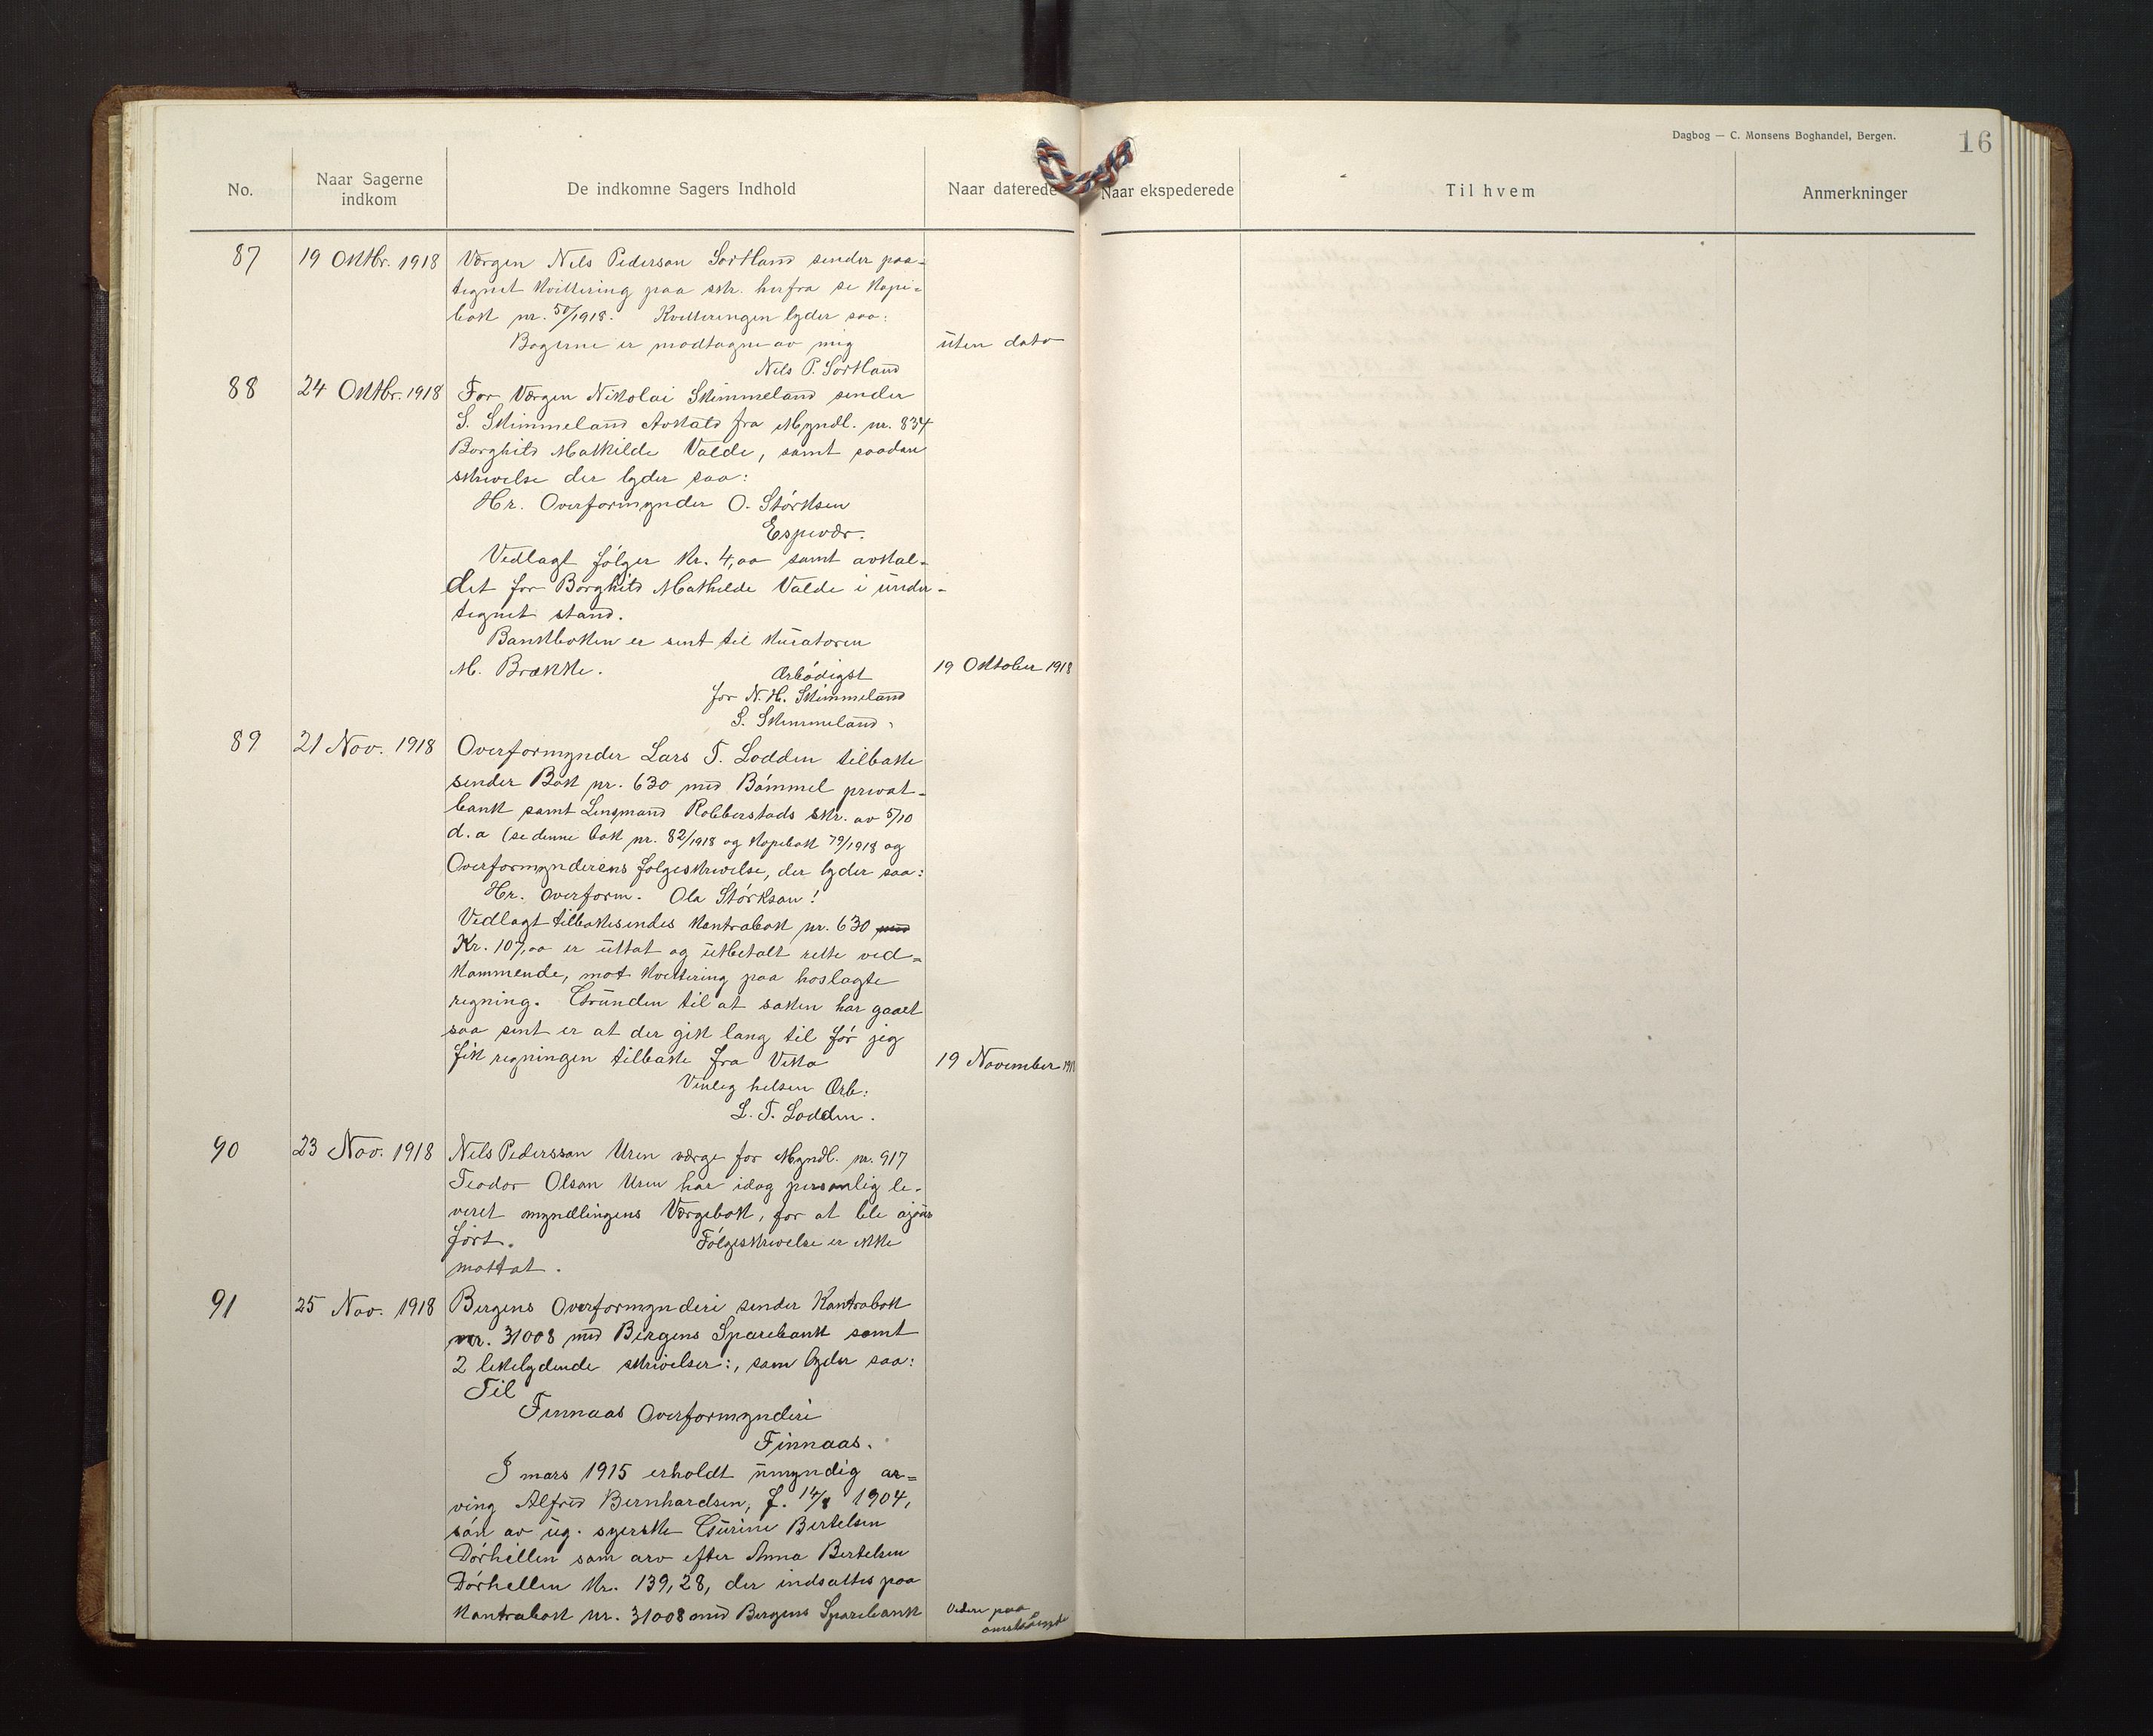 Dagbog — C. Monsens Boghandel, Bergen.
16
No.
Naar Sagerne indkom
De indkomne Sagers Indhold
Naar daterede
Naar ekspederede
Til hvem
Anmerkninger
87 19 Oktbr. 1918 Værgen Nils Pederson Sortland sender paa-
tegnet kvittering paa skr. herfra se Kopi-
bok nr. 50/1918. Kvitteringen lyder saa:
Bøgerne er modtagne av mig uten dato
Nils P. Sortland
88 24 Oktbr. 1918 For Værgen Nikolai Skimmeland sender
S. Skimmeland Avkald fra Myndl. nr. 834
Borghild Mathilde Valde, samt saadan
skrivelse der lyder saa:
Hr. Overformynder O. Størksen
Espevær.
Vedlagt følger Kr. 4,00 samt avkal-
det for Borghild Mathilde Valde i under-
tegnet stand.
Bankboken er sent til Kuratoren
M. Brække. 19 Oktober 1918
Ærbødigst
for N. H. Skimmeland
S. Skimmeland
89 21 Nov. 1918 Overformynder Lars T. Lodden tilbake
sender Bok nr. 630 med Bømmel privat-
bank samt Lensmand Robberstads skr. av 5/10
d.a (se denne bok nr. 82/1918 og Kopibok 79/1918 og
Overformynderens følgeskrivelse, der lyder saa:
Hr. Overform. Ola Størkson!
Vedlagt tilbakesendes Kontrabok nr. 630 med
Kr. 107,00 er uttat og utbetalt rette ved-
kommende, mot kvittering paa hoslagte
regning. Grunden til at saken har gaaet
saa sent er at der gik lang til før jeg
fik regningen tilbake fra Vika 19 November 1918
Venlig helsen Ærb:
L. T. Lodden.
90 23 Nov. 1918 Nils Pedersson Uren værge for Myndl. nr. 917
Teodor Olson Uren har idag personlig le-
veret myndlingens Værgebok, for at bli ajour
ført. Følgeskrivelse er ikke
mottat.
91 25 Nov. 1918 Bergens Overformynderi sender Kontrabok
nr. 31008 med Bergens Sparebank samt
2 likelydende skrivelser:, som lyder saa:
Til
Finnaas Overformynderi
Finnaas.
I mars 1915 erholdt umyndig ar-
ving Alfred Bernhardsen, f. 14/8 1904,
søn av ug. syerske Gurine Bertelsen
Dørhellen som arv efter Anna Bertelsen
Dørhellen Kr. 139,28, der indsattes paa
Kontrabok nr. 31008 med Bergens Sparebank
Videre paa
omstående